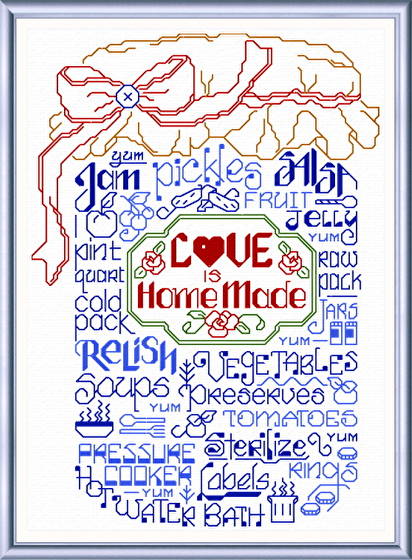 yum
Jam pickles SALSA
FRUIT
Jelly
YUM
pint
quart
cold
pack
LOVE
IS
Home Made
raw
pack
JARS
YUM
RELISH
VEGETABLES
Soups
preserves
YUM
TOMATOES
PRESSURE
COOKER
Sterilize
YUM
HOT
YUM
Labels
Rings
WATER BATH